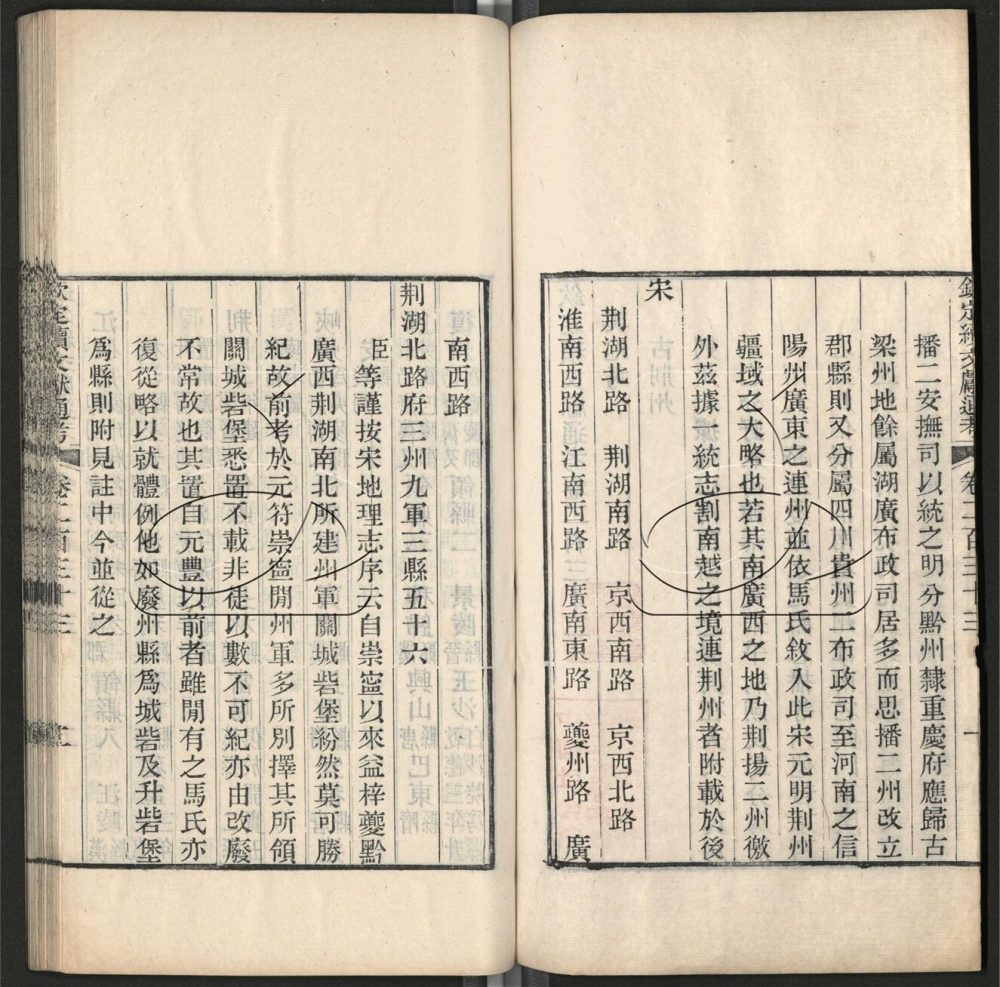 欽定續文獻通考 卷二百三十三
播二安撫司以統之明分黔州隸重慶府應歸古
梁州地餘屬湖廣布政司居多而思播二州改立
郡縣則又分屬四川貴州二布政司至河南之信
陽州廣東之連州並依馬氏敘入此宋元明荆州
疆域之大略也若其南廣西之地乃荆揚二州徼
外茲據一統志割南越之境連荆州者附載於後
宋
荆湖北路 荆湖南路 京西南路 京西北路
淮南西路 江南西路 廣南東路 夔州路 廣
南西路
荆湖北路府三州九軍三縣五十六
臣等謹按宋地理志序云自崇寧以來益梓夔黔
廣西荆湖南北所建州軍關城砦堡紛然莫可勝
紀故前考於元符崇寧閒州軍多所別擇其所領
關城砦堡悉置不載非徒以數不可紀亦由改廢
不常故也其置自元豐以前者雖閒有之馬氏亦
復從略以就體例他如廢州縣爲城砦及升砦堡
爲縣則附見註中今並從之
欽定續文獻通考 卷二百三十三